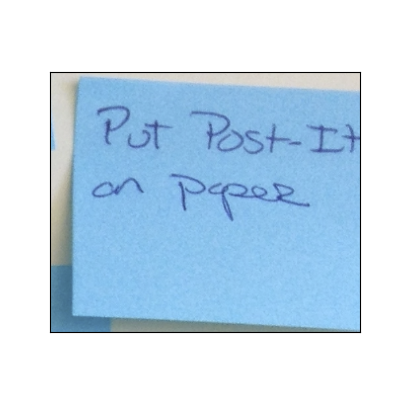 Put Post-It
on paper